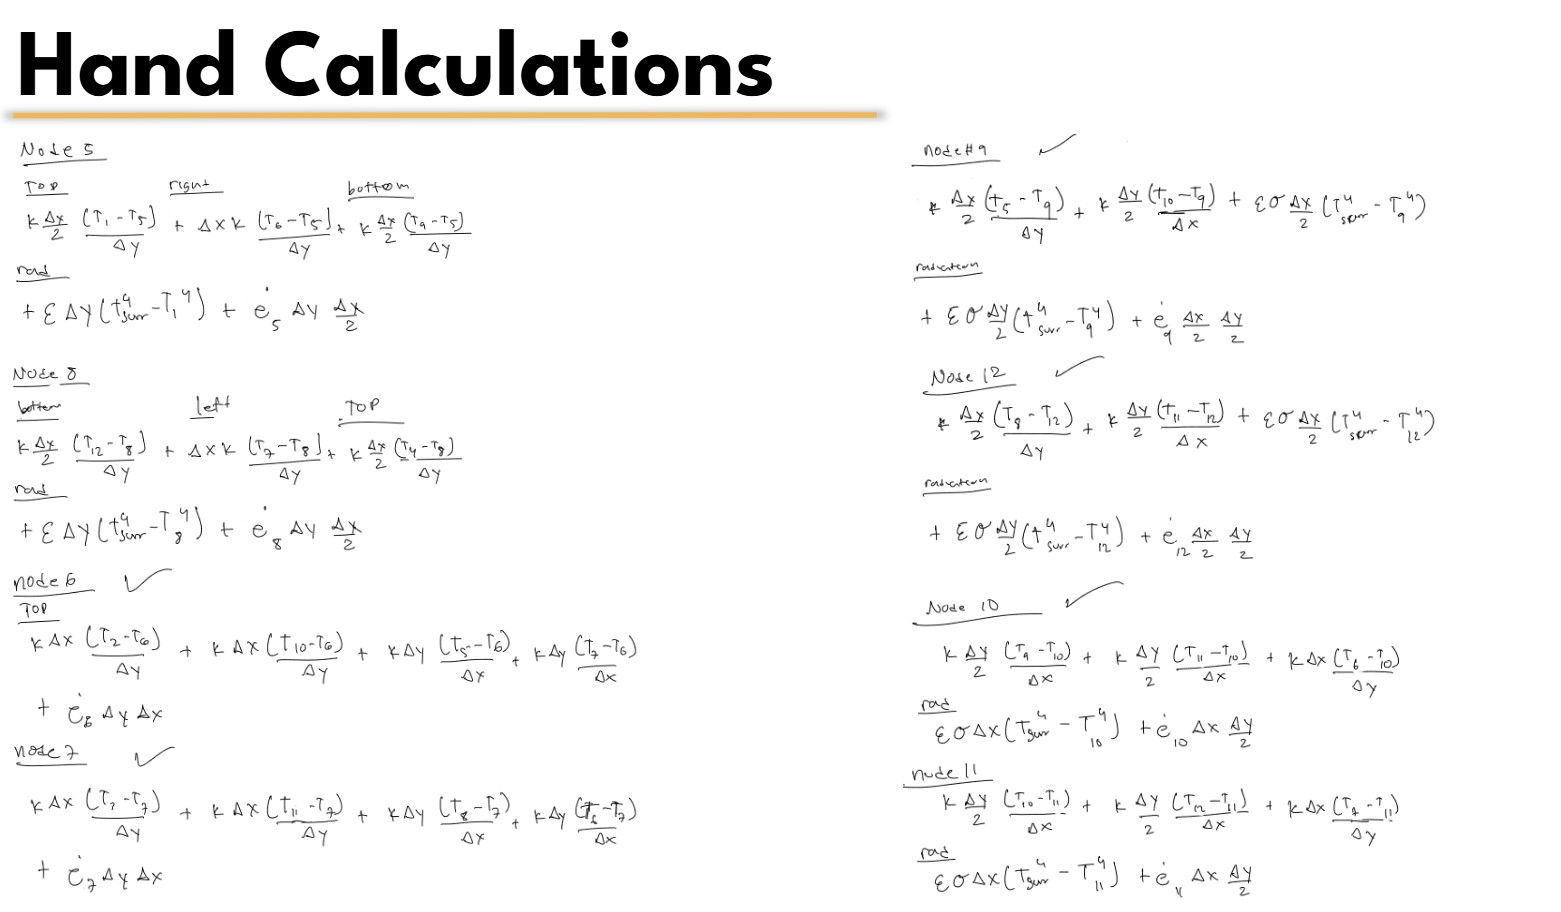 Hand Calculations
Node 5
Top right bottom
k Δx/2 (T₁ - T₅)/Δy + Δx k (T₆ - T₅)/Δy + k Δx/2 (T₉ - T₅)/Δy
rad
+ ε Δy (t⁴surr - T₁⁴) + ė₅ Δy Δx/2
Node 8
bottom left TOP
k Δx/2 (T₁₂ - T₈)/Δy + Δx k (T₇ - T₈)/Δy + k Δx/2 (T₄ - T₈)/Δy
rad
+ ε Δy (t⁴surr - T₈⁴) + ė₈ Δy Δx/2
node 6 ✓
TOP
k Δx (T₂ - T₆)/Δy + k Δx (t₁₀ - T₆)/Δy + k Δy (T₅ - T₆)/Δx + k Δy (T₇ - T₆)/Δx
+ ė₆ Δy Δx
node 7 ✓
k Δx (T₃ - T₇)/Δy + k Δx (t₁₁ - T₇)/Δy + k Δy (t₈ - T₇)/Δx + k Δy (T₆ - T₇)/Δx
+ ė₇ Δy Δx
node #9 ✓
k Δx/2 (t₅ - T₉)/Δy + k Δy/2 (t₁₀ - T₉)/Δx + εσ Δx/2 (T⁴surr - T₉⁴)
radiation
+ εσ Δy/2 (t⁴surr - T₉⁴) + ė₉ Δx/2 Δy/2
Node 12 ✓
k Δx/2 (T₈ - T₁₂)/Δy + k Δy/2 (t₁₁ - T₁₂)/Δx + εσ Δx/2 (T⁴surr - T₁₂⁴)
radiation
+ εσ Δy/2 (t⁴surr - T₁₂⁴) + ė₁₂ Δx/2 Δy/2
Node 10 ✓
k Δy/2 (T₉ - T₁₀)/Δx + k Δy/2 (T₁₁ - T₁₀)/Δx + k Δx (T₆ - T₁₀)/Δy
rad
εσΔx (T⁴surr - T₁₀⁴) + ė₁₀ Δx Δy/2
node 11
k Δy/2 (T₁₀ - T₁₁)/Δx + k Δy/2 (T₁₂ - T₁₁)/Δx + k Δx (T₇ - T₁₁)/Δy
rad
εσΔx (T⁴surr - T₁₁⁴) + ė₁₁ Δx Δy/2